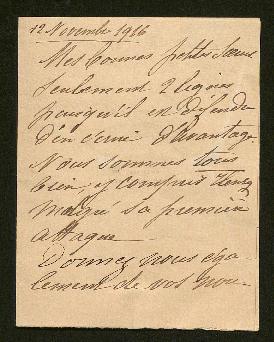 12 Novembre 1916
Mes bonnes petites Sœurs
Seulement 2 lignes
puisqu'il est défendu
d'en écrire d'avantage.
Nous sommes tous
bien, y compris
malgré sa première
attaque —
Donnez nous éga-
lement de vos nou-